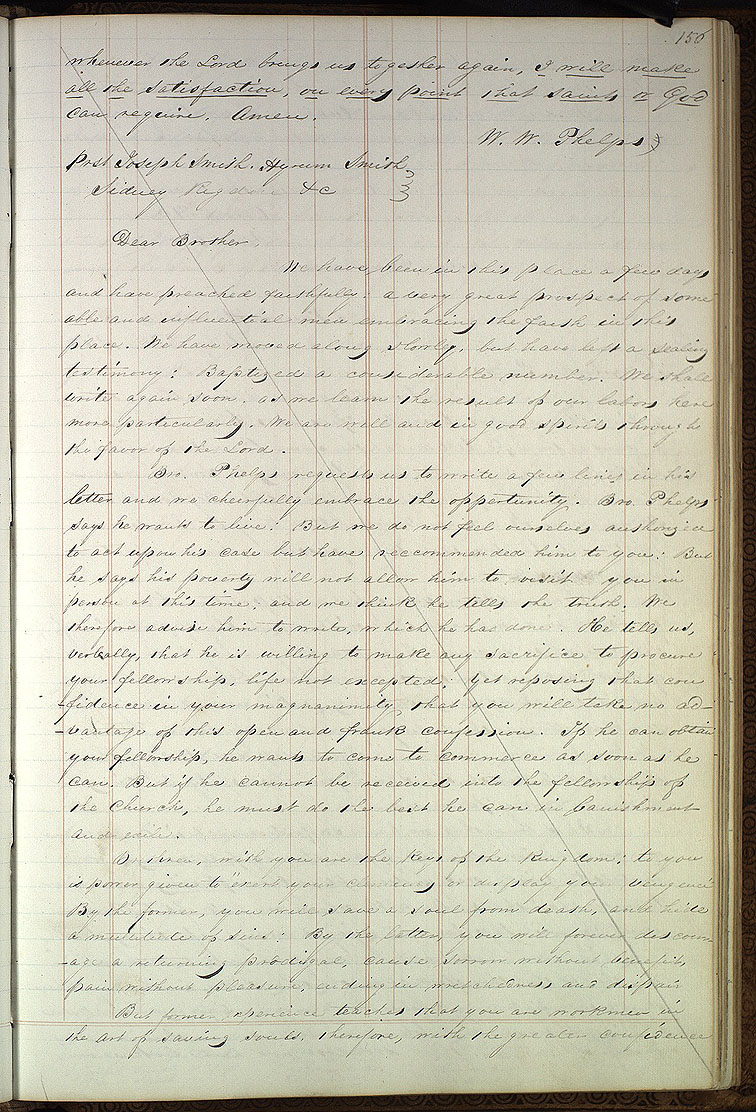 156
whenever the Lord brings us together again, I will make
all the satisfaction, on every point that saints or God
can require. Amen.
W. W. Phelps
Prst Joseph Smith. Hyrum Smith,
Sidney Rigdon &c
Dear Brother.
We have been in this place a few days
and have preached faithfully: a very great prospect of some
able and influential men embracing the faith in this
place. We have moved along slowly, but have left a sealing
testimony: Baptized a considerable number. We shall
write again soon. as we learn the result of our labors here
more particularly. We are well and in good spirits through
the favor of the Lord.
Bro. Phelps requests us to write a few lines in his
letter and we cheerfully embrace the opportunity. Bro. Phelps
says he wants to live: But we do not feel ourselves authorzice
to act upon his case but have reccommended him to you: But
he says his poverty will not allow him to visit you in
person at this time: and we think he tells the truth. We
therefore advise him to write, which he has done. He tells us,
verbally, that he is willing to make any sacrifice to procure
your fellowship, life not excepted; yet reposing that con
fidence in your magnanimity, that you will take no ad-
-vantage of this open and frank confession. If he can obtain
your fellowship, he wants to come to commerce as soon as he
can. But if he cannot be received into the fellowship of
the Church, he must do the best he can in banishment
and exile.
Brethren, with you are the Keys of the Kingdom; to you
is power given to "exert your clemency or display your vengence"
By the former, you will save a soul from death, and hide
a multitude of sins: By the latter, you will forever discour
-age a returning prodigal, cause sorrow without benefit,
pain without pleasure, ending in wretchedness and dispair.
But former experience teaches that you are workmen in
the art of saving souls. therefore, with the greater confidence